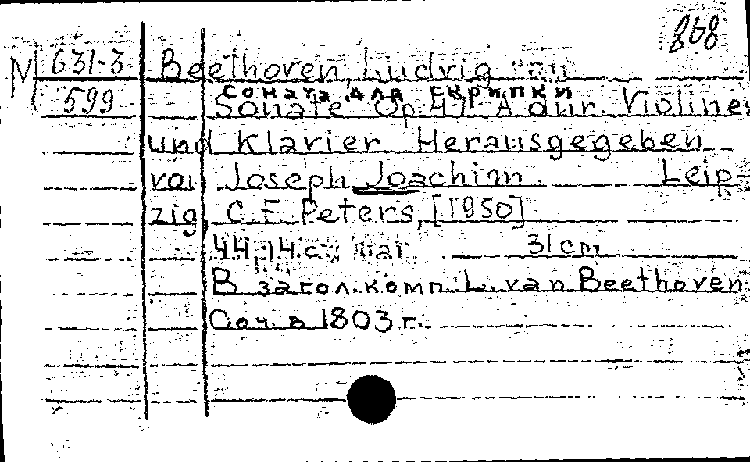 868
М 631-3 Beethoven, Ludvig van
599 Соната для скрипки
Sonate Op. 47 A dur. Violine
und Klavier. Herausgegeben
von Joseph Joachim. Leip-
zig, C. F. Peters, [1950]
44, 14 с. 31 cm
В загол. комп.: L. van Beethoven
Соч. в 1803 г.